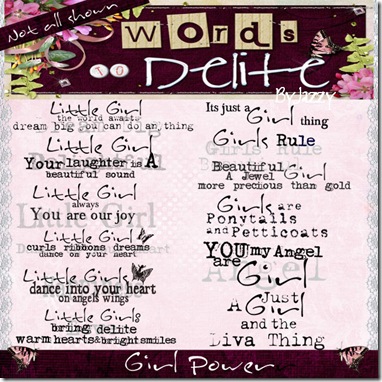 Not all shown
words
TO
Delite
By Izzy
Little Girl
the world awaits
dream big you can do an thing
Little Girl
Your laughter is A
beautiful sound
Little Girl
always
You are our joy
Little Girls
curls ribbons dreams
dance on your heart
Little Girls
dance into your heart
on angels wings
Little Girls
bring delite
warm hearts & bright smiles
Its just a Girl thing
Girls Rule
Beautiful Girl
A Jewel
more precious than gold
Girls are
Ponytails
and Petticoats
YOU my Angel
are Girl
Just
A Girl
and the
Diva Thing
Girl Power